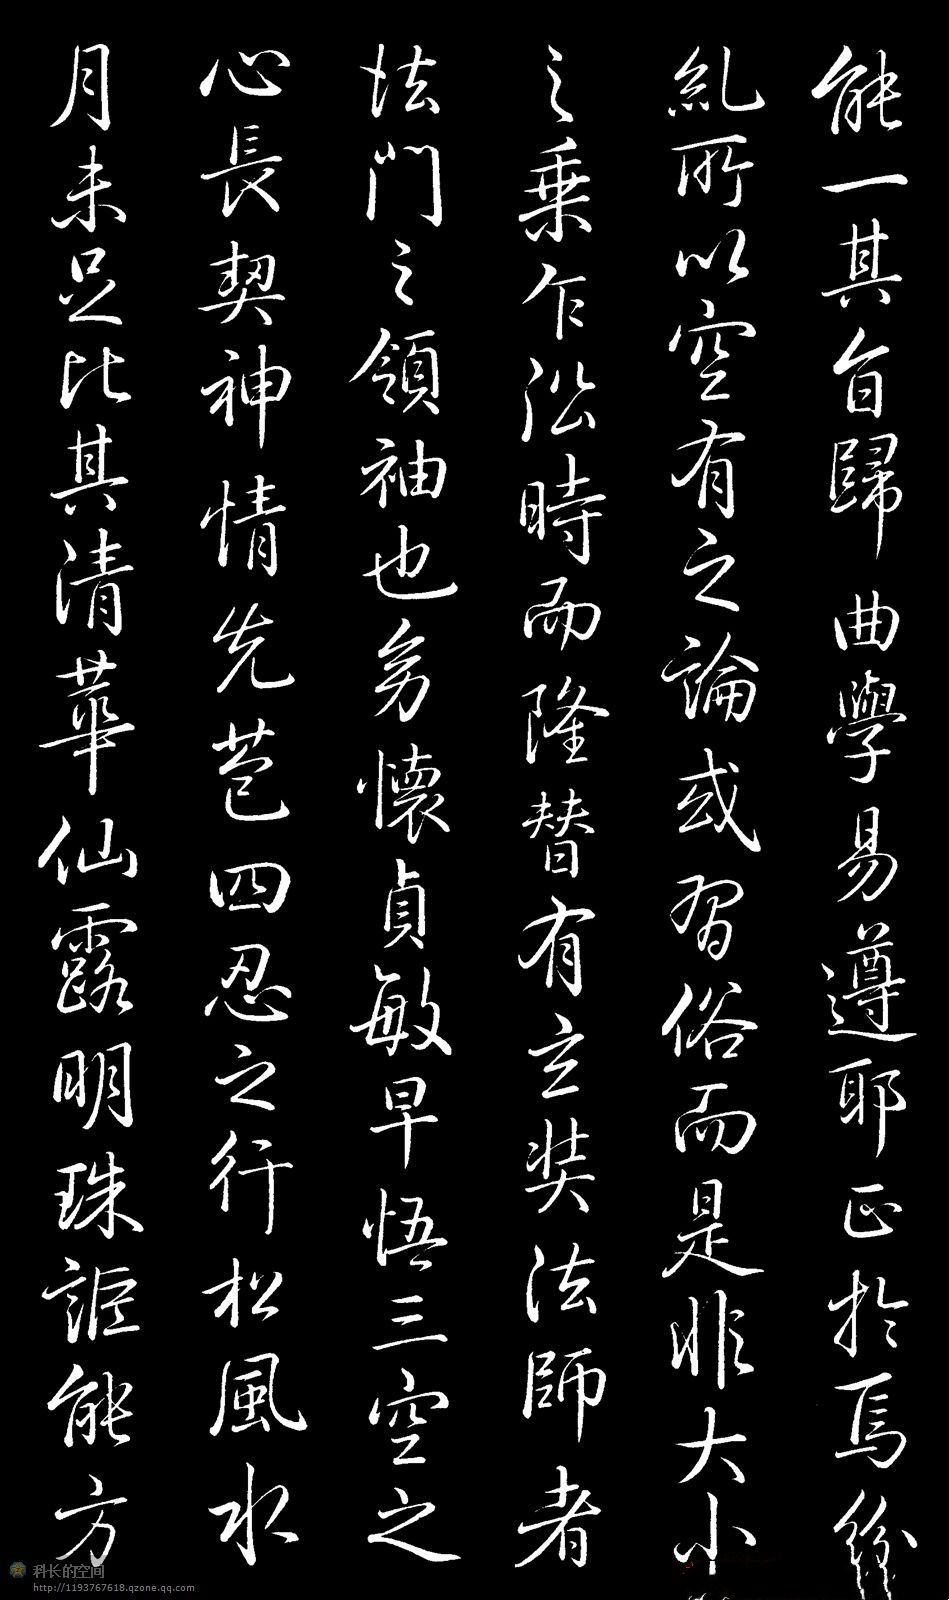 能一其旨歸曲學易遵耶正於焉紛
糺所以空有之論或習俗而是非大小
之乗乍沿時而隆替有玄奘法師者
法門之領袖也㓜懷貞敏早悟三空之
心長契神情先苞四忍之行松風水
月未足比其清華仙露明珠詎能方
科长的空间
http://1193767618.qzone.qq.com